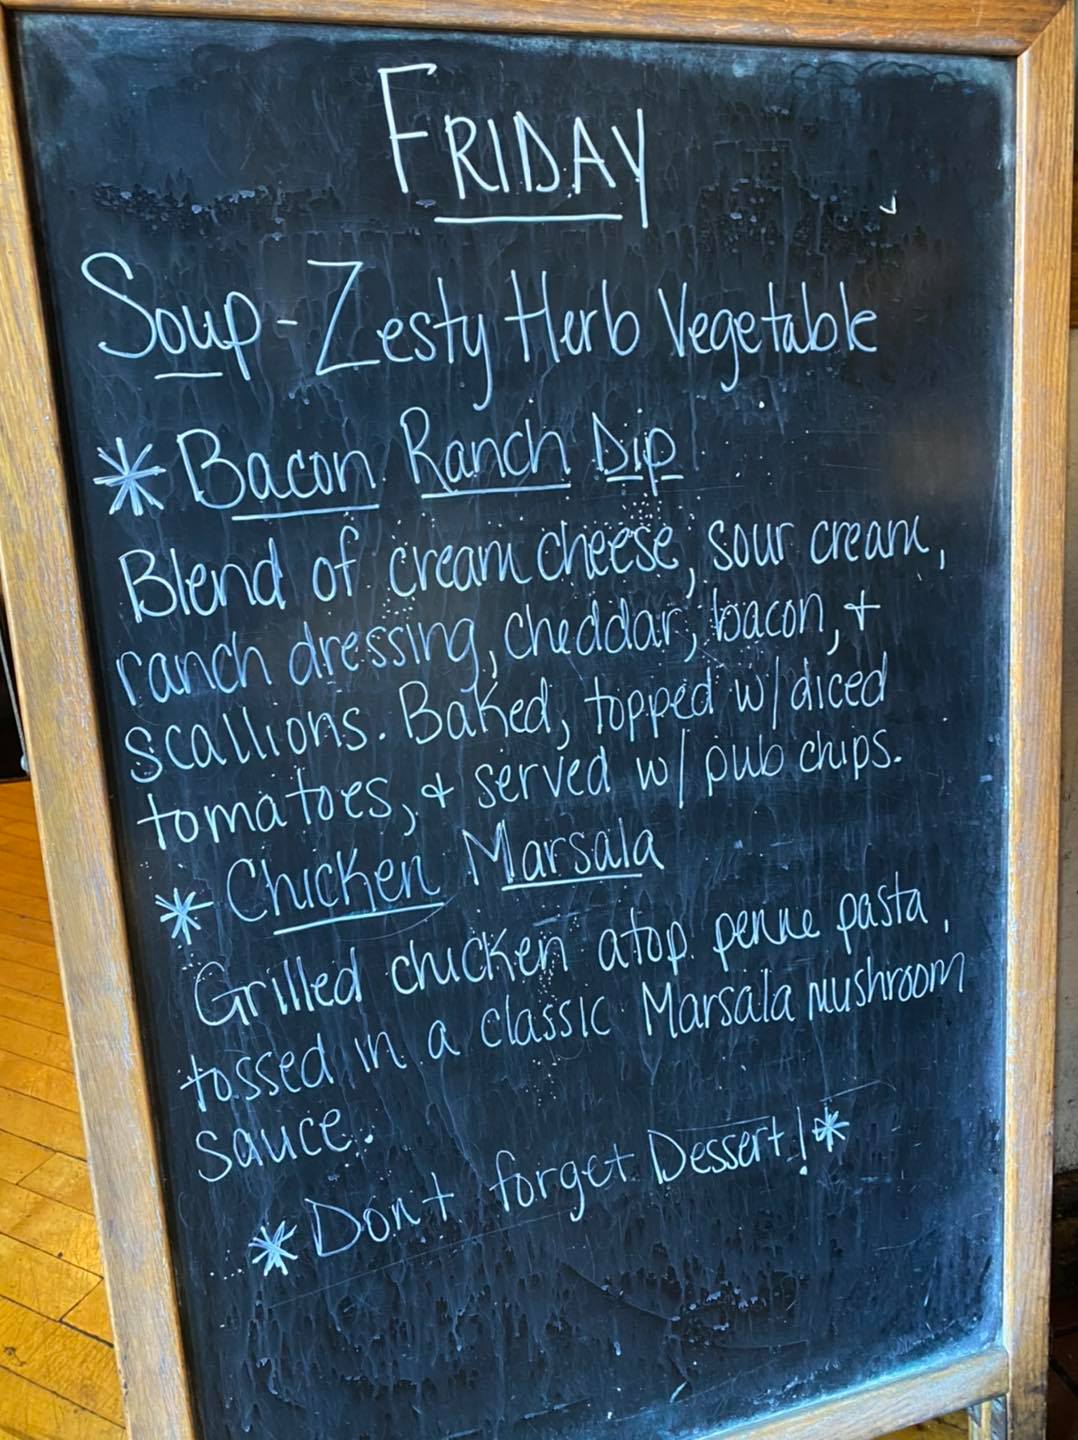 FRIDAY
Soup - Zesty Herb Vegetable
* Bacon Ranch Dip
Blend of cream cheese, sour cream,
ranch dressing, cheddar, bacon, +
scallions. Baked, topped w/ diced
tomatoes, + served w/ pub chips.
* Chicken Marsala
Grilled chicken atop penne pasta,
tossed in a classic Marsala mushroom
sauce.
* Don't forget Dessert! *